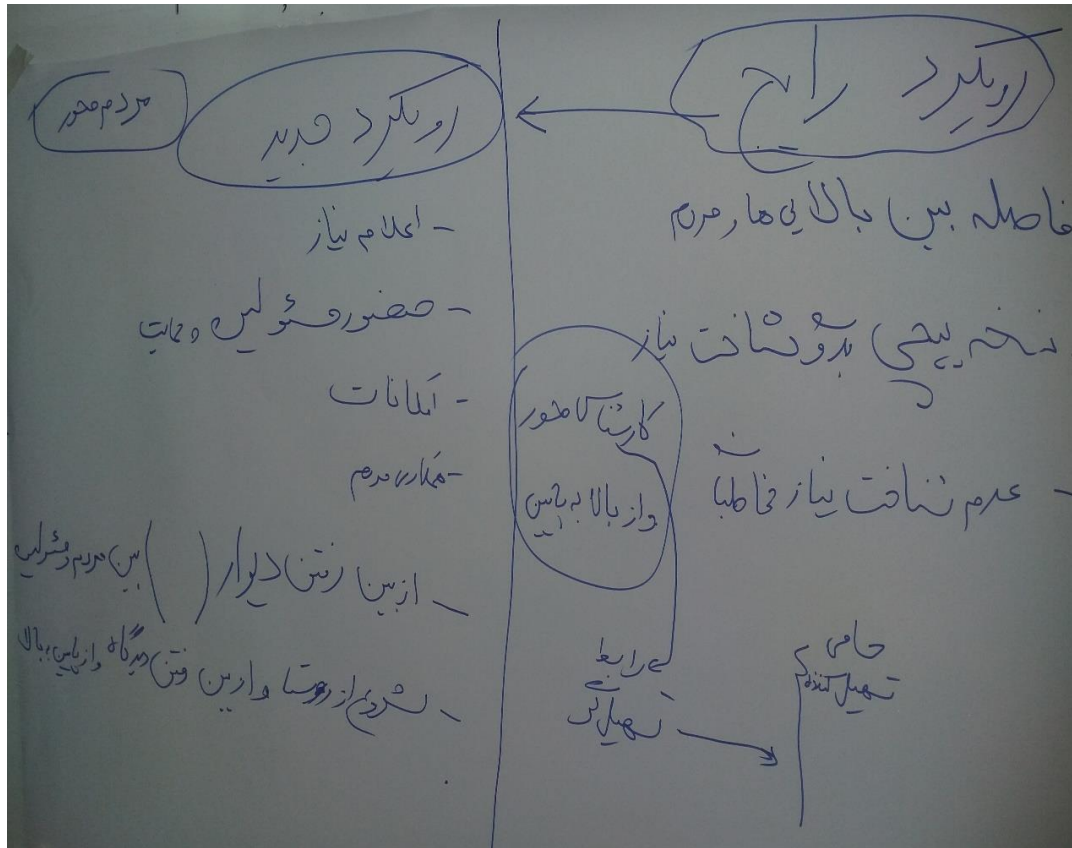 رویکرد رایج
فاصله بین بالایی ها و مردم
نسخه پیچی بدون شناخت نیاز
- عدم شناخت نیاز مخاطبان
کارشناس محور
و از بالا به پایین
رابط
تسهیل گر
حامی
تسهیل کننده
رویکرد جدید
مردم محور
- اعلام نیاز
- حضور مسئولین و حمایت
- امکانات
- همکاری مردم
- از بین رفتن دیوار ( ) بین مردم و مسئولین
- از روستا و از بین رفتن دیدگاه و از پایین به بالا